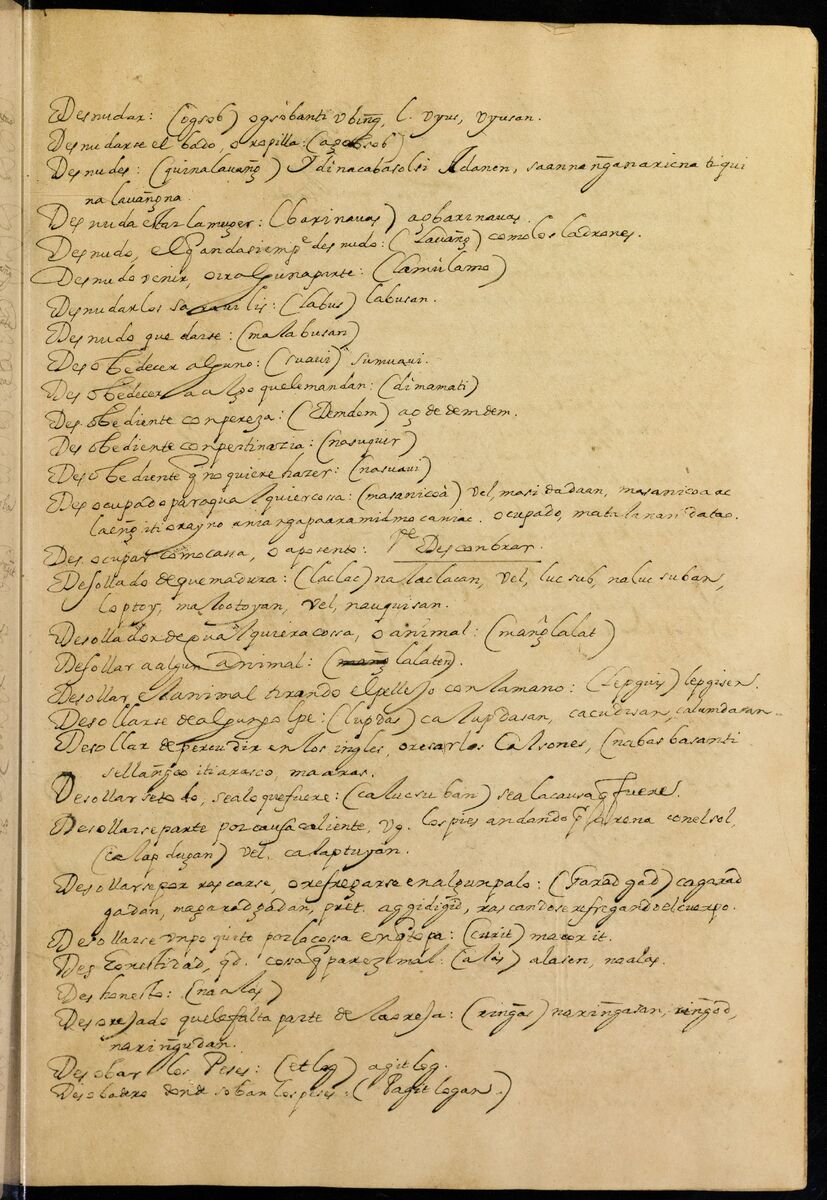 Desnudar: (ogsob) ogsobanti vbing, l. vyus, vyusan.
Desnudarse el bado, o ropilla: (agobsob)
Desnudes: (quinalavang) Y dinacabasolsi Adanen, saannangasariena tequi
nalavangna.
Desnuda estar la muger: (barinavas) agbarinavas.
Desnudo, el q̃ anda siempᵉ desnudo: (Lavang) como los ladrones.
Desnudo venir, o ir a alguna parte: (lamulamo)
Desnudar los: (labus) labusan.
Desnudo quedarse: (malabusan)
Desobedecer alguno: (suavi) sumuavi.
Desobedecer a algo que le mandan: (dimamati)
Desobediente con pereza: (Demdem) ag de demdem.
Desobediente con pertinazia: (nasuquir)
Desobediente q̃ no quiere hazer: (nasuavi)
Desocupado para qualquier cossa: (masanicoà) vel, masidadaan, masanicoa ac
laeng iti oray no aniangapaaramidmo caniac. ocupado, matalinandatao.
Desocupar como cassa, o aposento: Vᵉ Desconbrar.
Desollado de quemadura: (laclac) nalaclacan, vel, lucsub, nalucsuban,
loptoy, malootoyan, vel, nauquisan.
Desollador de qualquiera cossa, o animal: (manglalat)
Desollar a algun animal: (lalaten).
Desollar el animal tirando el pellejo con la mano: (lepguis) lepgisen.
Desollarse de algun golpe: (lupdas) calupdasan, cacudisan, calumdasan.
Desollar de percudir en los ingles, o resar los Calsones, (nabasbasanti
sellangco itiarasco, maaras.
Desollarse todo, sea lo que fuere: (calucsuban) sea la causa q̃ fuere.
Desollarse parte por causa caliente, vg. los pies andando pʳ la arena con el sol,
(calapdugan) vel. calaptuyan.
Desollarse por rascarse, o refregarse en algun palo: (Garadgad) cagarad
gadan, nagaradgadan, pret. aggidigid, rascandose refregando el cuerpo.
Desollarse vn poquito por la cossa en q̃ topa: (curit) macorit.
Desonestidad, qd. cossa q̃ pareze mal: (alas) alasen, naalas.
Deshonesto: (naalas)
Desorejado que le falta parte de la oreja: (ringas) naringasan, ringod,
naringudan.
Desobar los Peses: (etlog) agitlog.
Desobadero donde soban los peses: (Pagitlogan.)